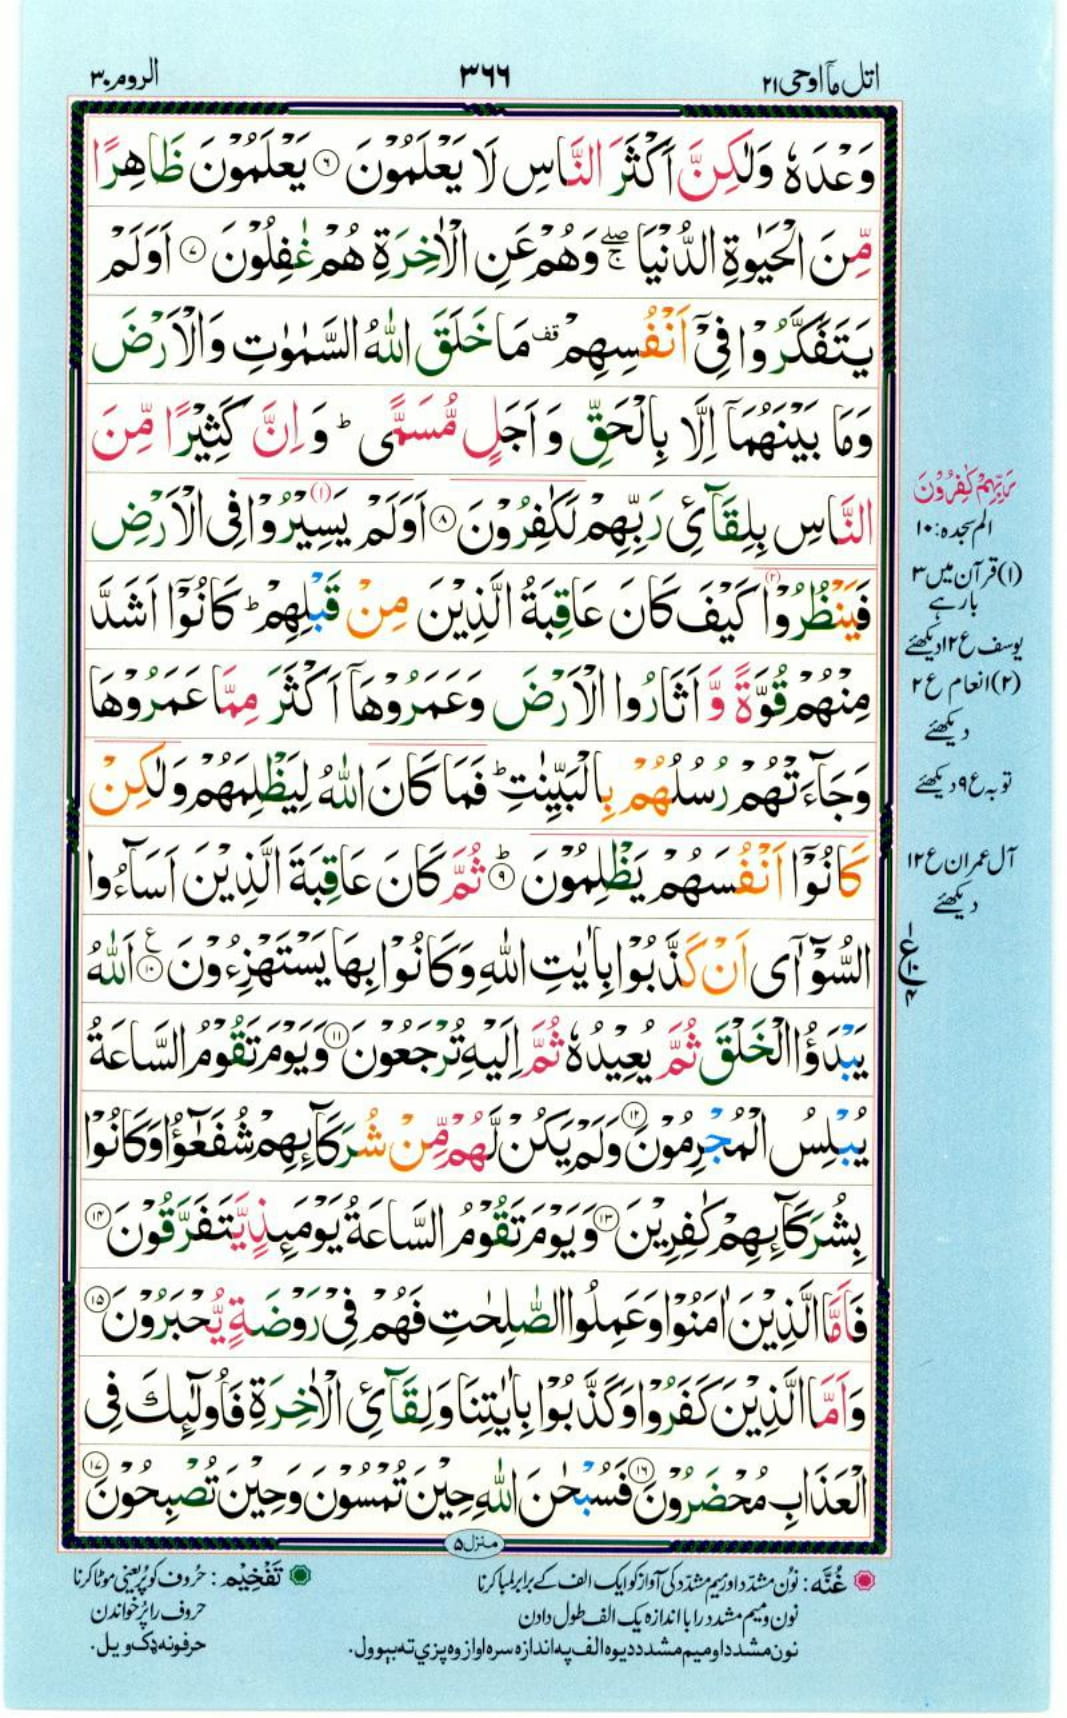 اتل مآ اوحی ۲۱
۳۶۶
الروم ۳۰
وَعْدَهٗ وَلٰكِنَّ اَكْثَرَ النَّاسِ لَا يَعْلَمُوْنَ ۶ يَعْلَمُوْنَ ظَاهِرًا
مِّنَ الْحَيٰوةِ الدُّنْيَا صلے ج وَهُمْ عَنِ الْاٰخِرَةِ هُمْ غٰفِلُوْنَ ۷ اَوَلَمْ
يَتَفَكَّرُوْا فِيْٓ اَنْفُسِهِمْ قف مَا خَلَقَ اللّٰهُ السَّمٰوٰتِ وَالْاَرْضَ
وَمَا بَيْنَهُمَآ اِلَّا بِالْحَقِّ وَ اَجَلٍ مُّسَمًّى ط وَ اِنَّ كَثِيْرًا مِّنَ
النَّاسِ بِلِقَآئِ رَبِّهِمْ لَكٰفِرُوْنَ ۸ اَوَلَمْ يَسِيْرُوْا (۱) فِی الْاَرْضِ
فَيَنْظُرُوْا (۲) كَيْفَ كَانَ عَاقِبَةُ الَّذِيْنَ مِنْ قَبْلِهِمْ ط كَانُوْٓا اَشَدَّ
مِنْهُمْ قُوَّةً وَّ اَثَارُوا الْاَرْضَ وَعَمَرُوْهَآ اَكْثَرَ مِمَّا عَمَرُوْهَا
وَجَآءَتْهُمْ رُسُلُهُمْ بِالْبَيِّنٰتِ ط فَمَا كَانَ اللّٰهُ لِيَظْلِمَهُمْ وَلٰكِنْ
كَانُوْٓا اَنْفُسَهُمْ يَظْلِمُوْنَ ط ۹ ثُمَّ كَانَ عَاقِبَةَ الَّذِيْنَ اَسَآءُوا
السُّوْٓاٰى اَنْ كَذَّبُوْا بِاٰيٰتِ اللّٰهِ وَكَانُوْا بِهَا يَسْتَهْزِءُوْنَ ع ۱۰ اَللّٰهُ
يَبْدَؤُا الْخَلْقَ ثُمَّ يُعِيْدُهٗ ثُمَّ اِلَيْهِ تُرْجَعُوْنَ ۱۱ وَيَوْمَ تَقُوْمُ السَّاعَةُ
يُبْلِسُ الْمُجْرِمُوْنَ ۱۲ وَلَمْ يَكُنْ لَّهُمْ مِّنْ شُرَكَآئِهِمْ شُفَعٰٓؤُا وَكَانُوْا
بِشُرَكَآئِهِمْ كٰفِرِيْنَ ۱۳ وَيَوْمَ تَقُوْمُ السَّاعَةُ يَوْمَئِذٍ يَّتَفَرَّقُوْنَ ۱۴
فَاَمَّا الَّذِيْنَ اٰمَنُوْا وَعَمِلُوا الصّٰلِحٰتِ فَهُمْ فِیْ رَوْضَةٍ يُّحْبَرُوْنَ ۱۵
وَاَمَّا الَّذِيْنَ كَفَرُوْا وَكَذَّبُوْا بِاٰيٰتِنَا وَلِقَآئِ الْاٰخِرَةِ فَاُولٰٓئِكَ فِی
الْعَذَابِ مُحْضَرُوْنَ ۱۶ فَسُبْحٰنَ اللّٰهِ حِيْنَ تُمْسُوْنَ وَحِيْنَ تُصْبِحُوْنَ ۱۷
بِرَبِّهِمْ كٰفِرُوْنَ
الم سجدہ: ۱۰
(۱) قرآن میں ۳
بار ہے
یوسف ع ۱۲ دیکھئے
(۲) انعام ع ۲
دیکھئے
توبہ ع ۹ دیکھئے
آل عمران ع ۱۲
دیکھئے
ع
منزل ۵
غُنَّہ: نون مشدد اور میم مشدد کی آواز کو ایک الف کے برابر لمبا کرنا
نون و میم مشدد را با اندازہ یک الف طول دادن
نون مشدد او میم مشدد دیوہ الف په اندازہ سرہ اواز وه پزي ته بېوول.
تَفْخِیْم: حروف کو پُر یعنی موٹا کرنا
حروف را پُر خواندن
حرفونه ډک ویل.